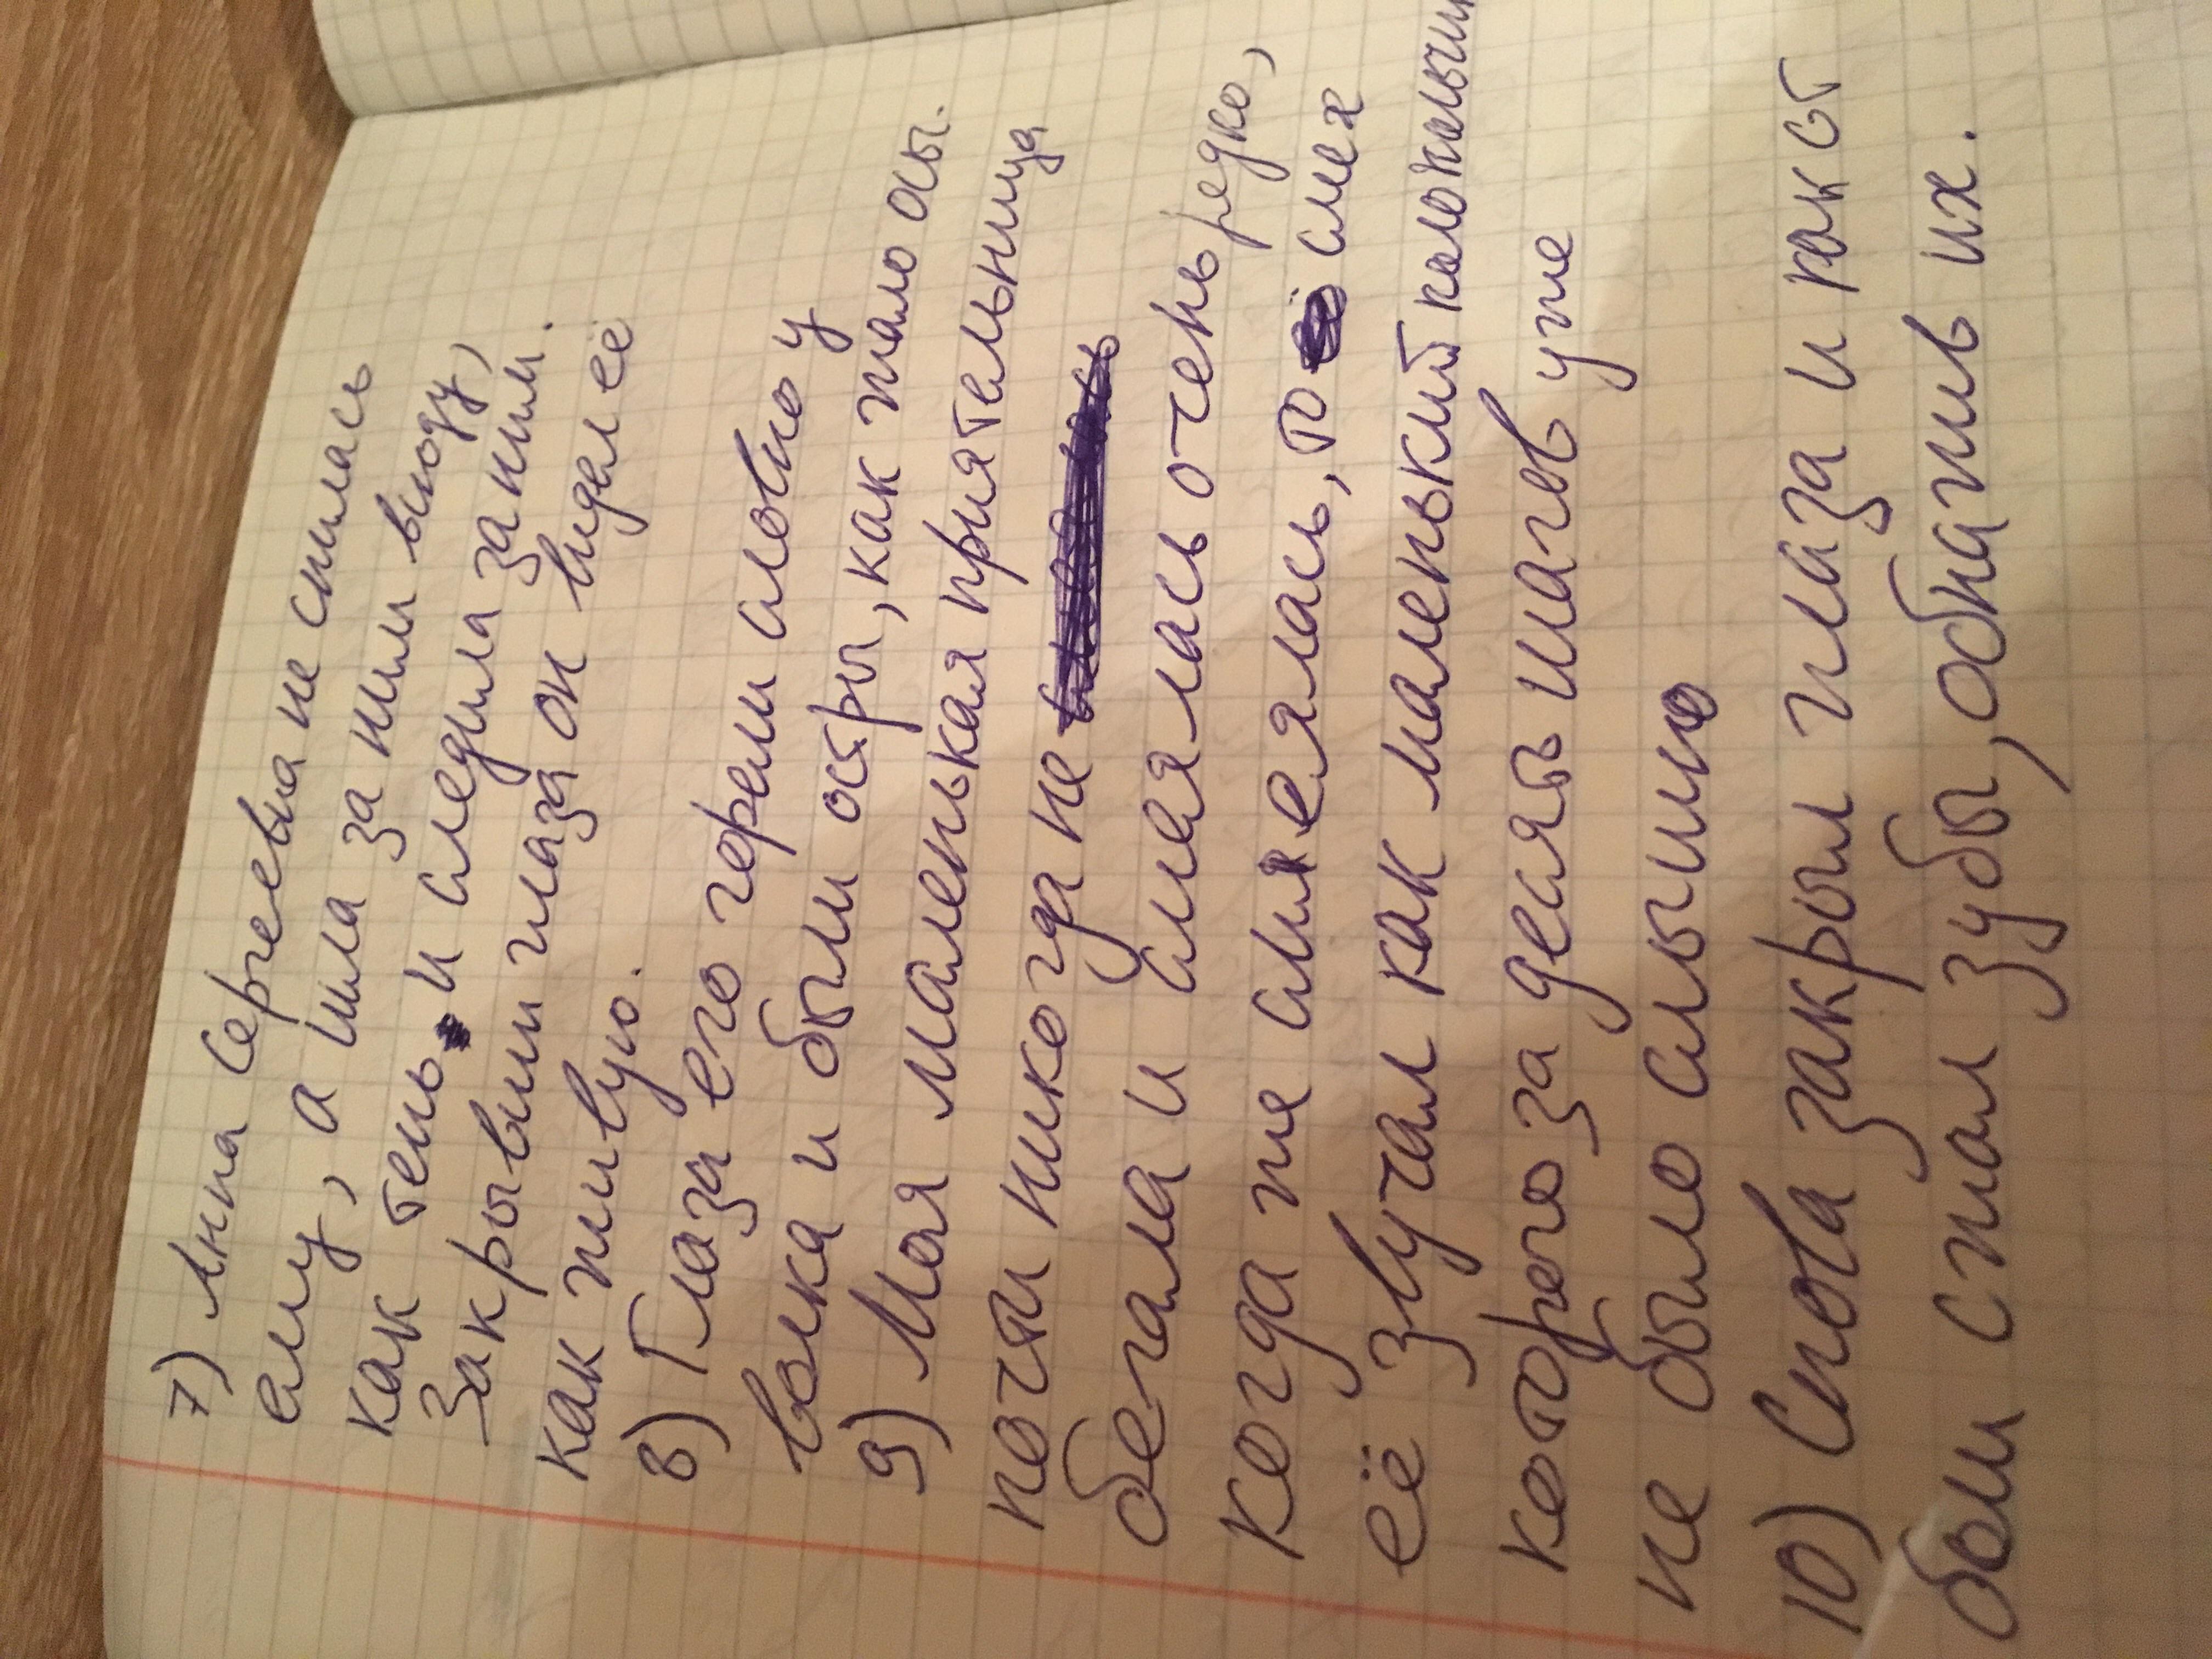 7) Анна Сергеевна не снилась
ему, а шла за ним всюду,
как тень и следила за ним.
Закрывши глаза он видел её
как живую.
8) Глаза его горели словно у
волка и были остры, как жало осы.
9) Моя маленькая приятельница
почти никогда не
бегала и смеялась очень редко,
когда же смеялась, то смех
её звучал как маленький колокольчик
которого за десять шагов уже
не было слышно
10) Снова закрыл глаза и как от
боли сжал зубы, обнажив их.